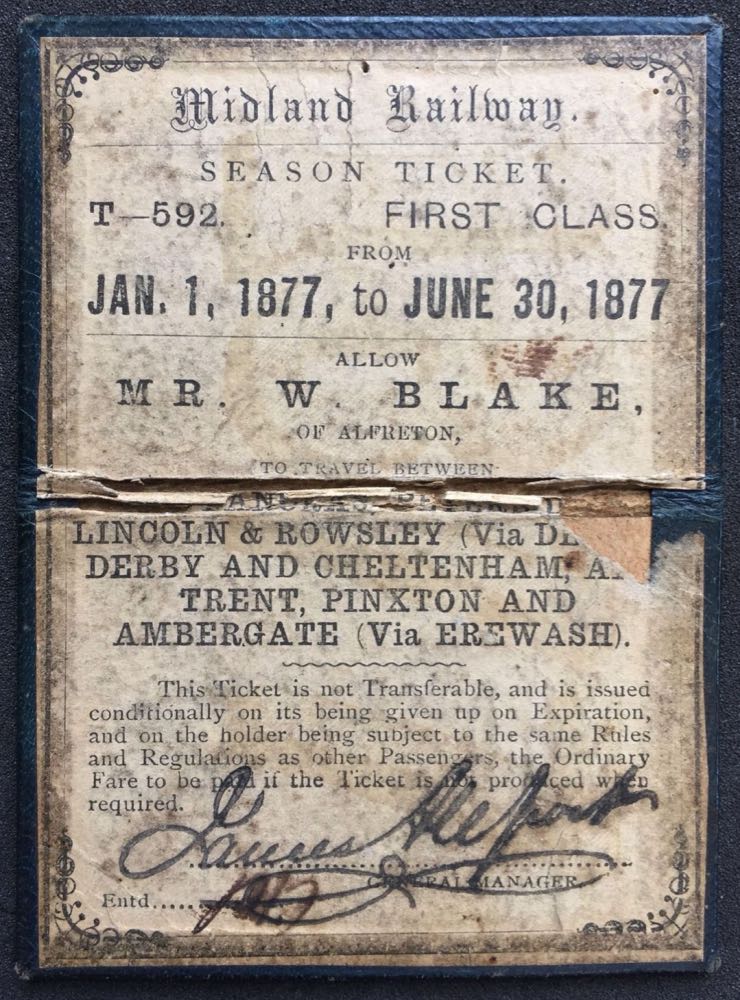 Midland Railway.
SEASON TICKET.
T—592. FIRST CLASS.
FROM
JAN. 1, 1877, to JUNE 30, 1877
ALLOW
MR. W. BLAKE,
OF ALFRETON,
TO TRAVEL BETWEEN
LINCOLN & ROWSLEY (Via
DERBY AND CHELTENHAM,
TRENT, PINXTON AND
AMBERGATE (Via EREWASH).
This Ticket is not Transferable, and is issued
conditionally on its being given up on Expiration,
and on the holder being subject to the same Rules
and Regulations as other Passengers, the Ordinary
Fare to be paid if the Ticket is not produced when
required.
James Allport
GENERAL MANAGER.
Entd.....